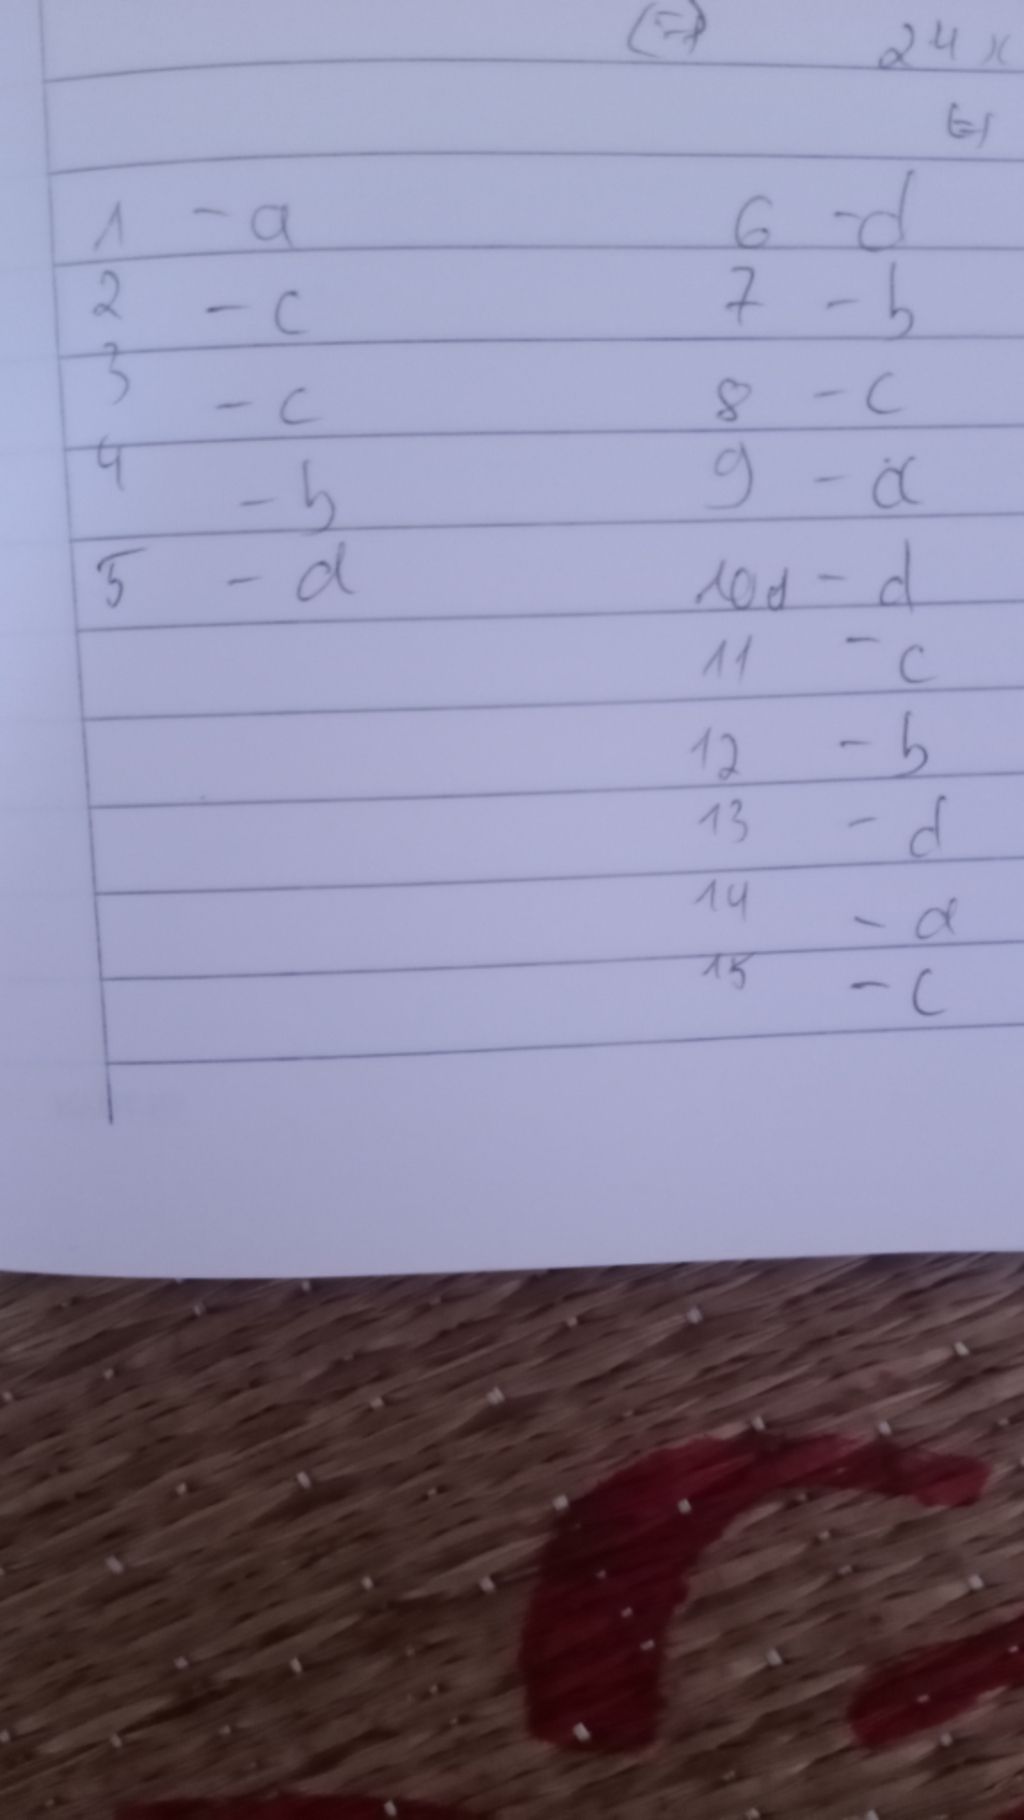 (=) 24x
(=)
1 - a 6 - d
2 - c 7 - b
3 - c 8 - c
4 - b 9 - a
5 - d 10d - d
11 - c
12 - b
13 - d
14 - a
15 - c